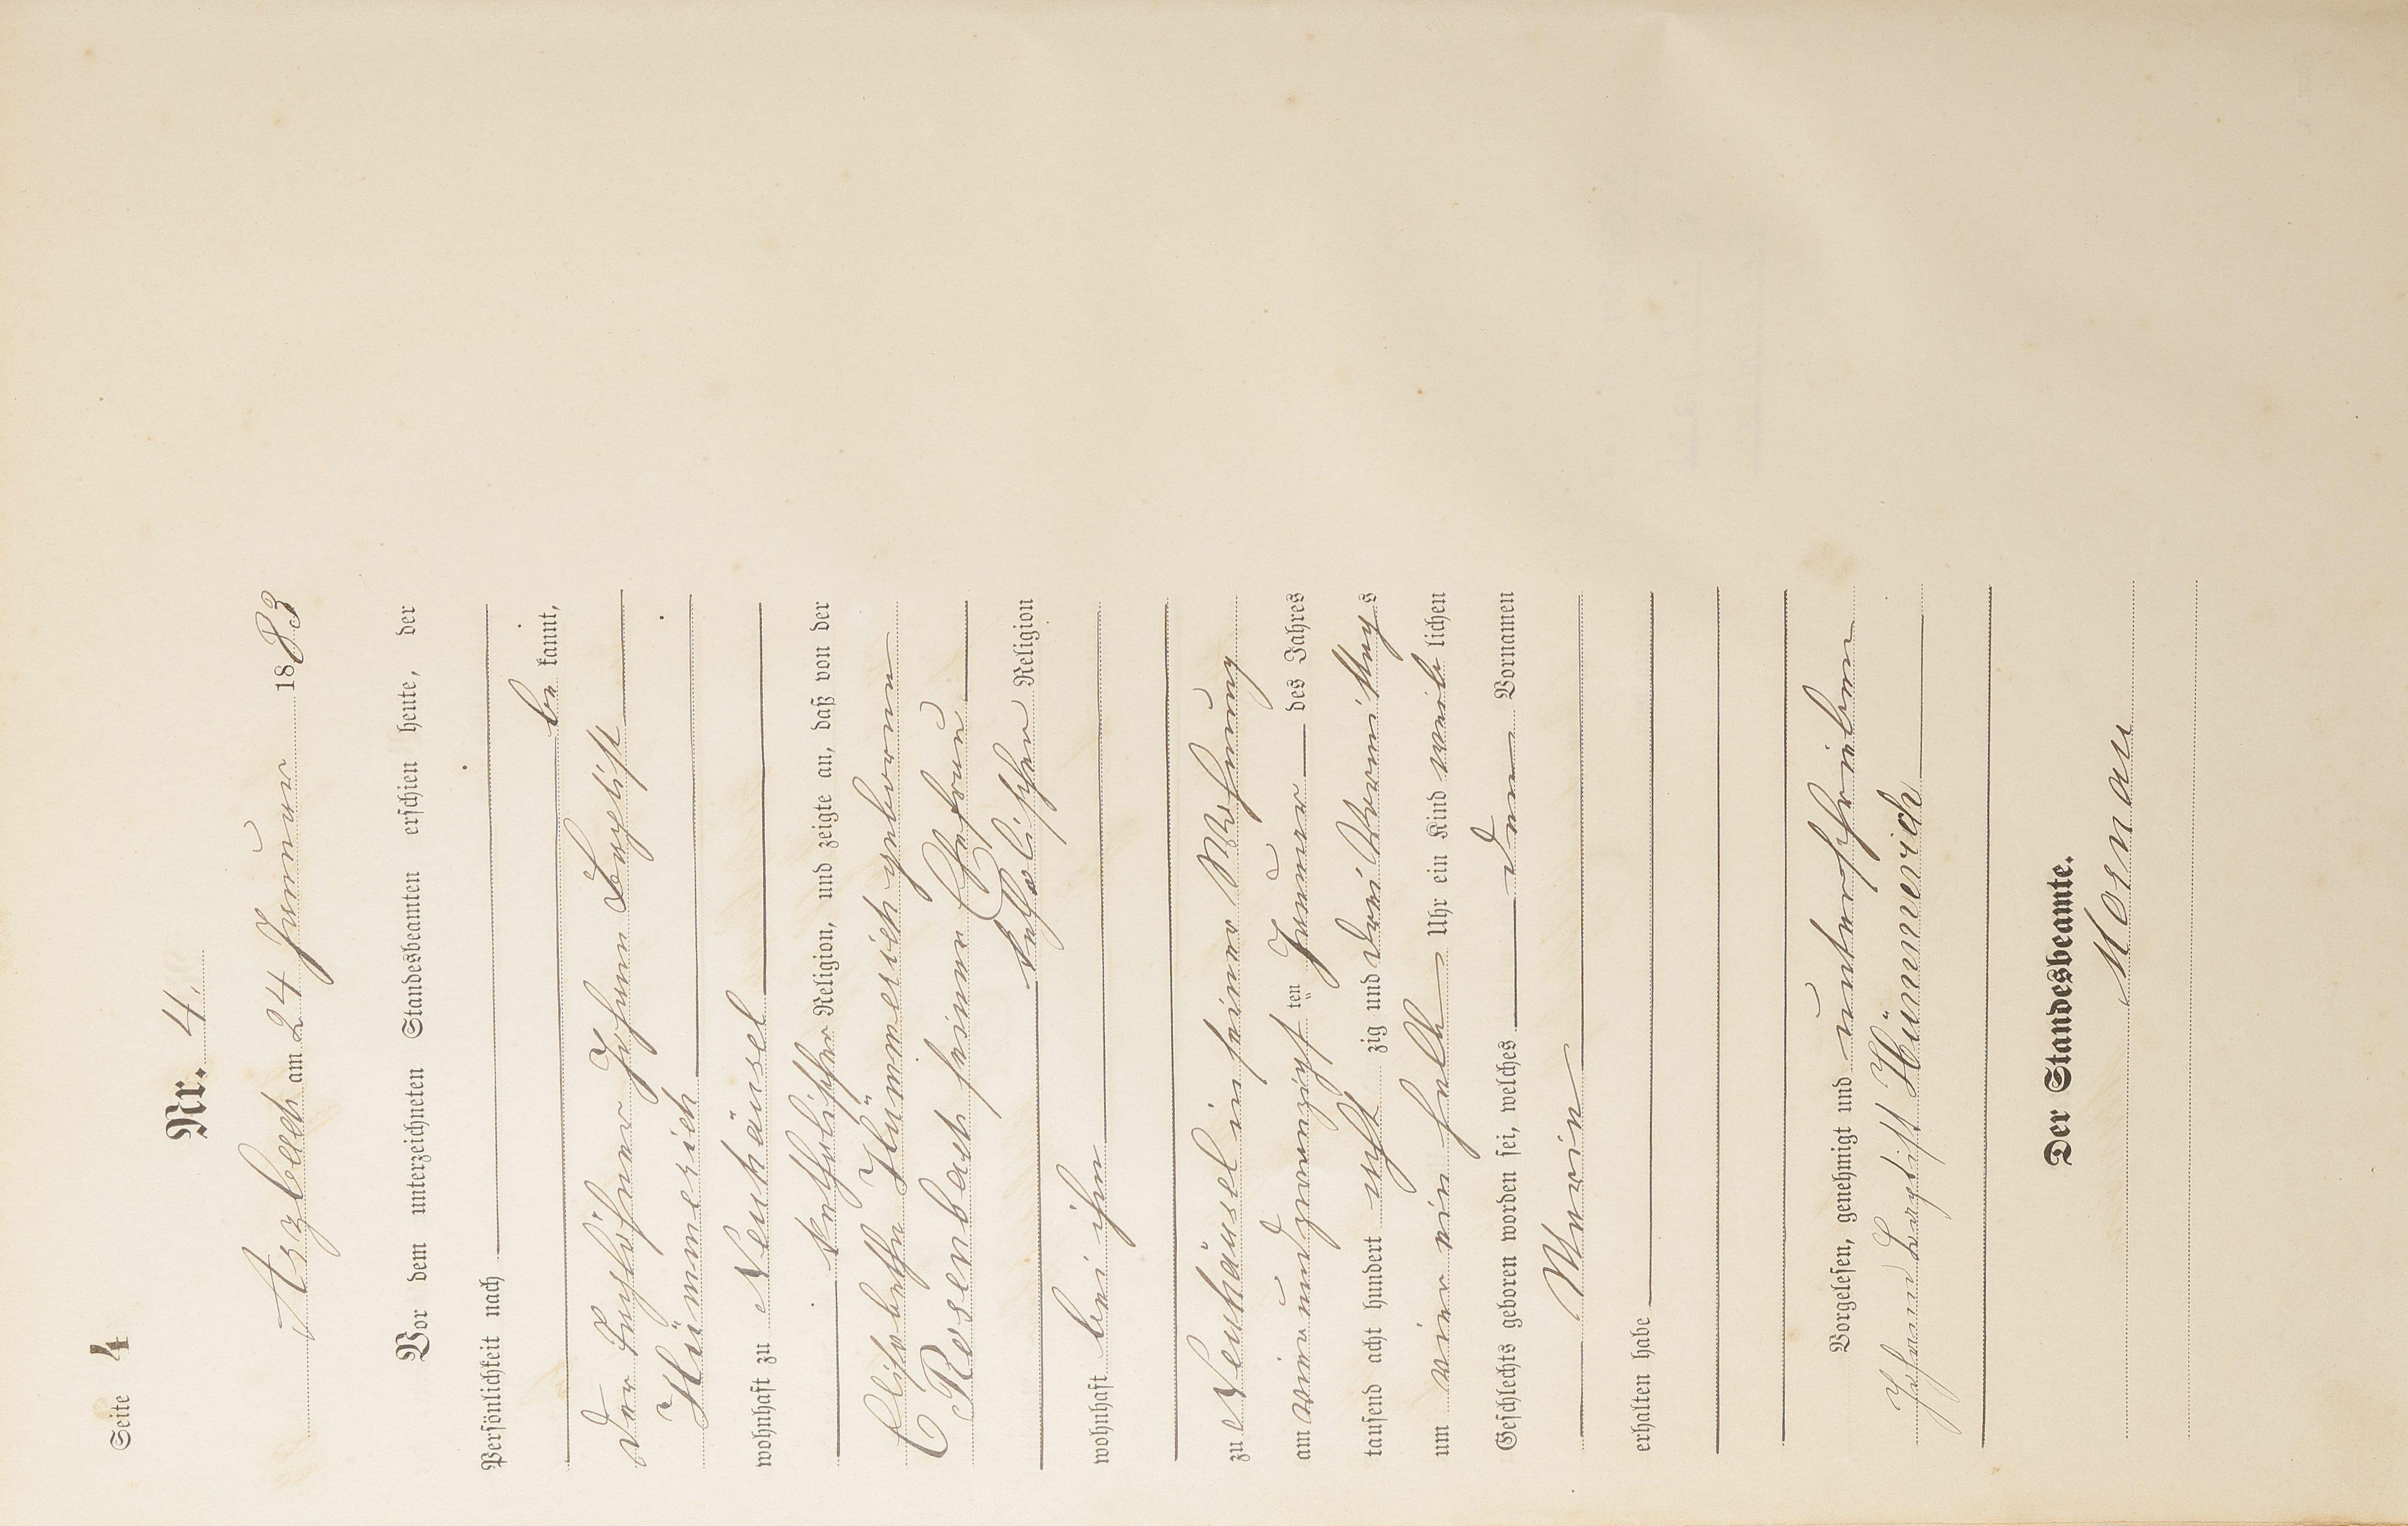 Seite 4
Nr. 4.
Arzbach am 24 Januar 1883
Vor dem unterzeichneten Standesbeamten erschien heute, der
Persönlichkeit nach
be kannt,
der Taglöhner Johann Baptist
Hümmerich
wohnhaft zu Neuhäusel
katholischer Religion, und zeigte an, daß von der
Elisabetha Hümmerich geborene
Rosenbach seiner Ehefrau
katholischer Religion
wohnhaft bei ihm
zu Neuhäusel in seiner Wohnung
am vierundzwanzigsten Januar des Jahres
tausend acht hundert achtzig und drei Vormittags
um vier ein halb Uhr ein Kind weiblichen
Geschlechts geboren worden sei, welches den Vornamen
Maria
erhalten habe
Vorgelesen, genehmigt und unterschrieben
Johann Baptist Hümmerich
Der Standesbeamte.